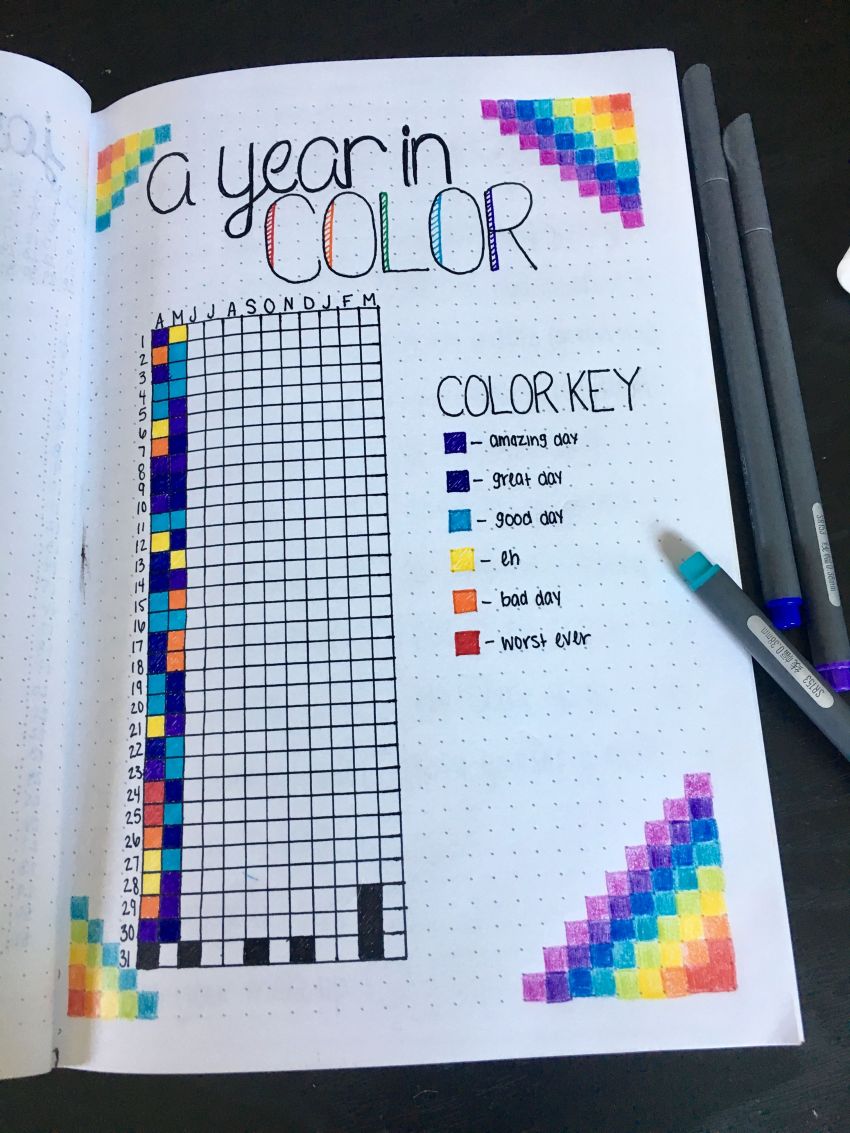 a year in
COLOR
A M J J A S O N D J F M
1
2
3
4
5
6
7
8
9
10
11
12
13
14
15
16
17
18
19
20
21
22
23
24
25
26
27
28
29
30
31
COLOR KEY
- amazing day
- great day
- good day
- eh
- bad day
- worst ever
SR153
0.38mm
SR153
0.38mm